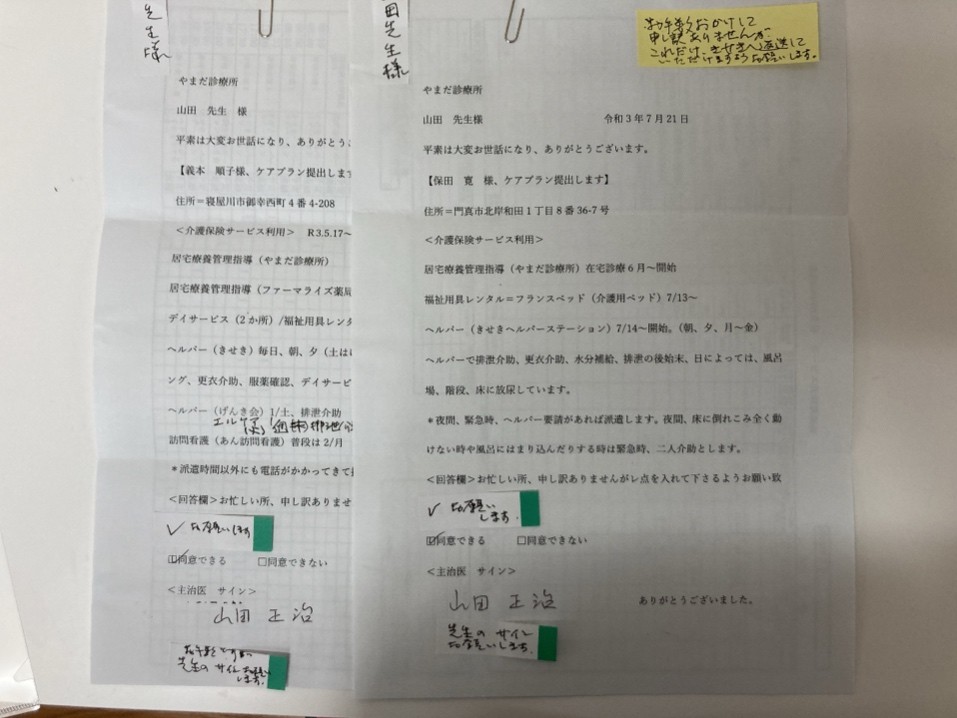 先生様
やまだ診療所
山田 先生 様
平素は大変お世話になり、ありがとう
【義本 順子様、ケアプラン提出しま
住所＝寝屋川市御幸西町4番4-208
＜介護保険サービス利用＞ R3.5.17～
居宅療養管理指導（やまだ診療所）
居宅療養管理指導（ファーマライズ薬局
デイサービス（2か所）/福祉用具レンタ
ヘルパー（きせき）毎日、朝、夕（土は
ング、更衣介助、服薬確認、デイサービ
ヘルパー（げんき会）1/土、排泄介助
訪問看護（あん訪問看護）普段は2/月
＊派遣時間以外にも電話がかかってきて
＜回答欄＞お忙しい所、申し訳ありませ
✓ お願いします
☑同意できる □同意できない
＜主治医 サイン＞
山田 正治
先生の サイン お願い
します。
田先生様
お手数おかけして
申し訳ありませんが、
これだけ、きせきへ返送して
いただけますようお願いします。
やまだ診療所
山田 先生様 令和3年7月21日
平素は大変お世話になり、ありがとうございます。
【保田 寛 様、ケアプラン提出します】
住所＝門真市北岸和田1丁目8番36-7号
＜介護保険サービス利用＞
居宅療養管理指導（やまだ診療所）在宅診療6月～開始
福祉用具レンタル＝フランスベッド（介護用ベッド）7/13～
ヘルパー（きせきヘルパーステーション）7/14～開始。（朝、夕、月～金）
ヘルパーで排泄介助、更衣介助、水分補給、排泄の後始末、日によっては、風呂
場、階段、床に放尿しています。
＊夜間、緊急時、ヘルパー要請があれば派遣します。夜間、床に倒れこみ全く動
けない時や風呂にはまり込んだりする時は緊急時、二人介助とします。
＜回答欄＞お忙しい所、申し訳ありませんがレ点を入れて下さるようお願い致
✓ お願い
します。
☑同意できる □同意できない
＜主治医 サイン＞
山田 正治 ありがとうございました。
先生の サイン
お願いします。